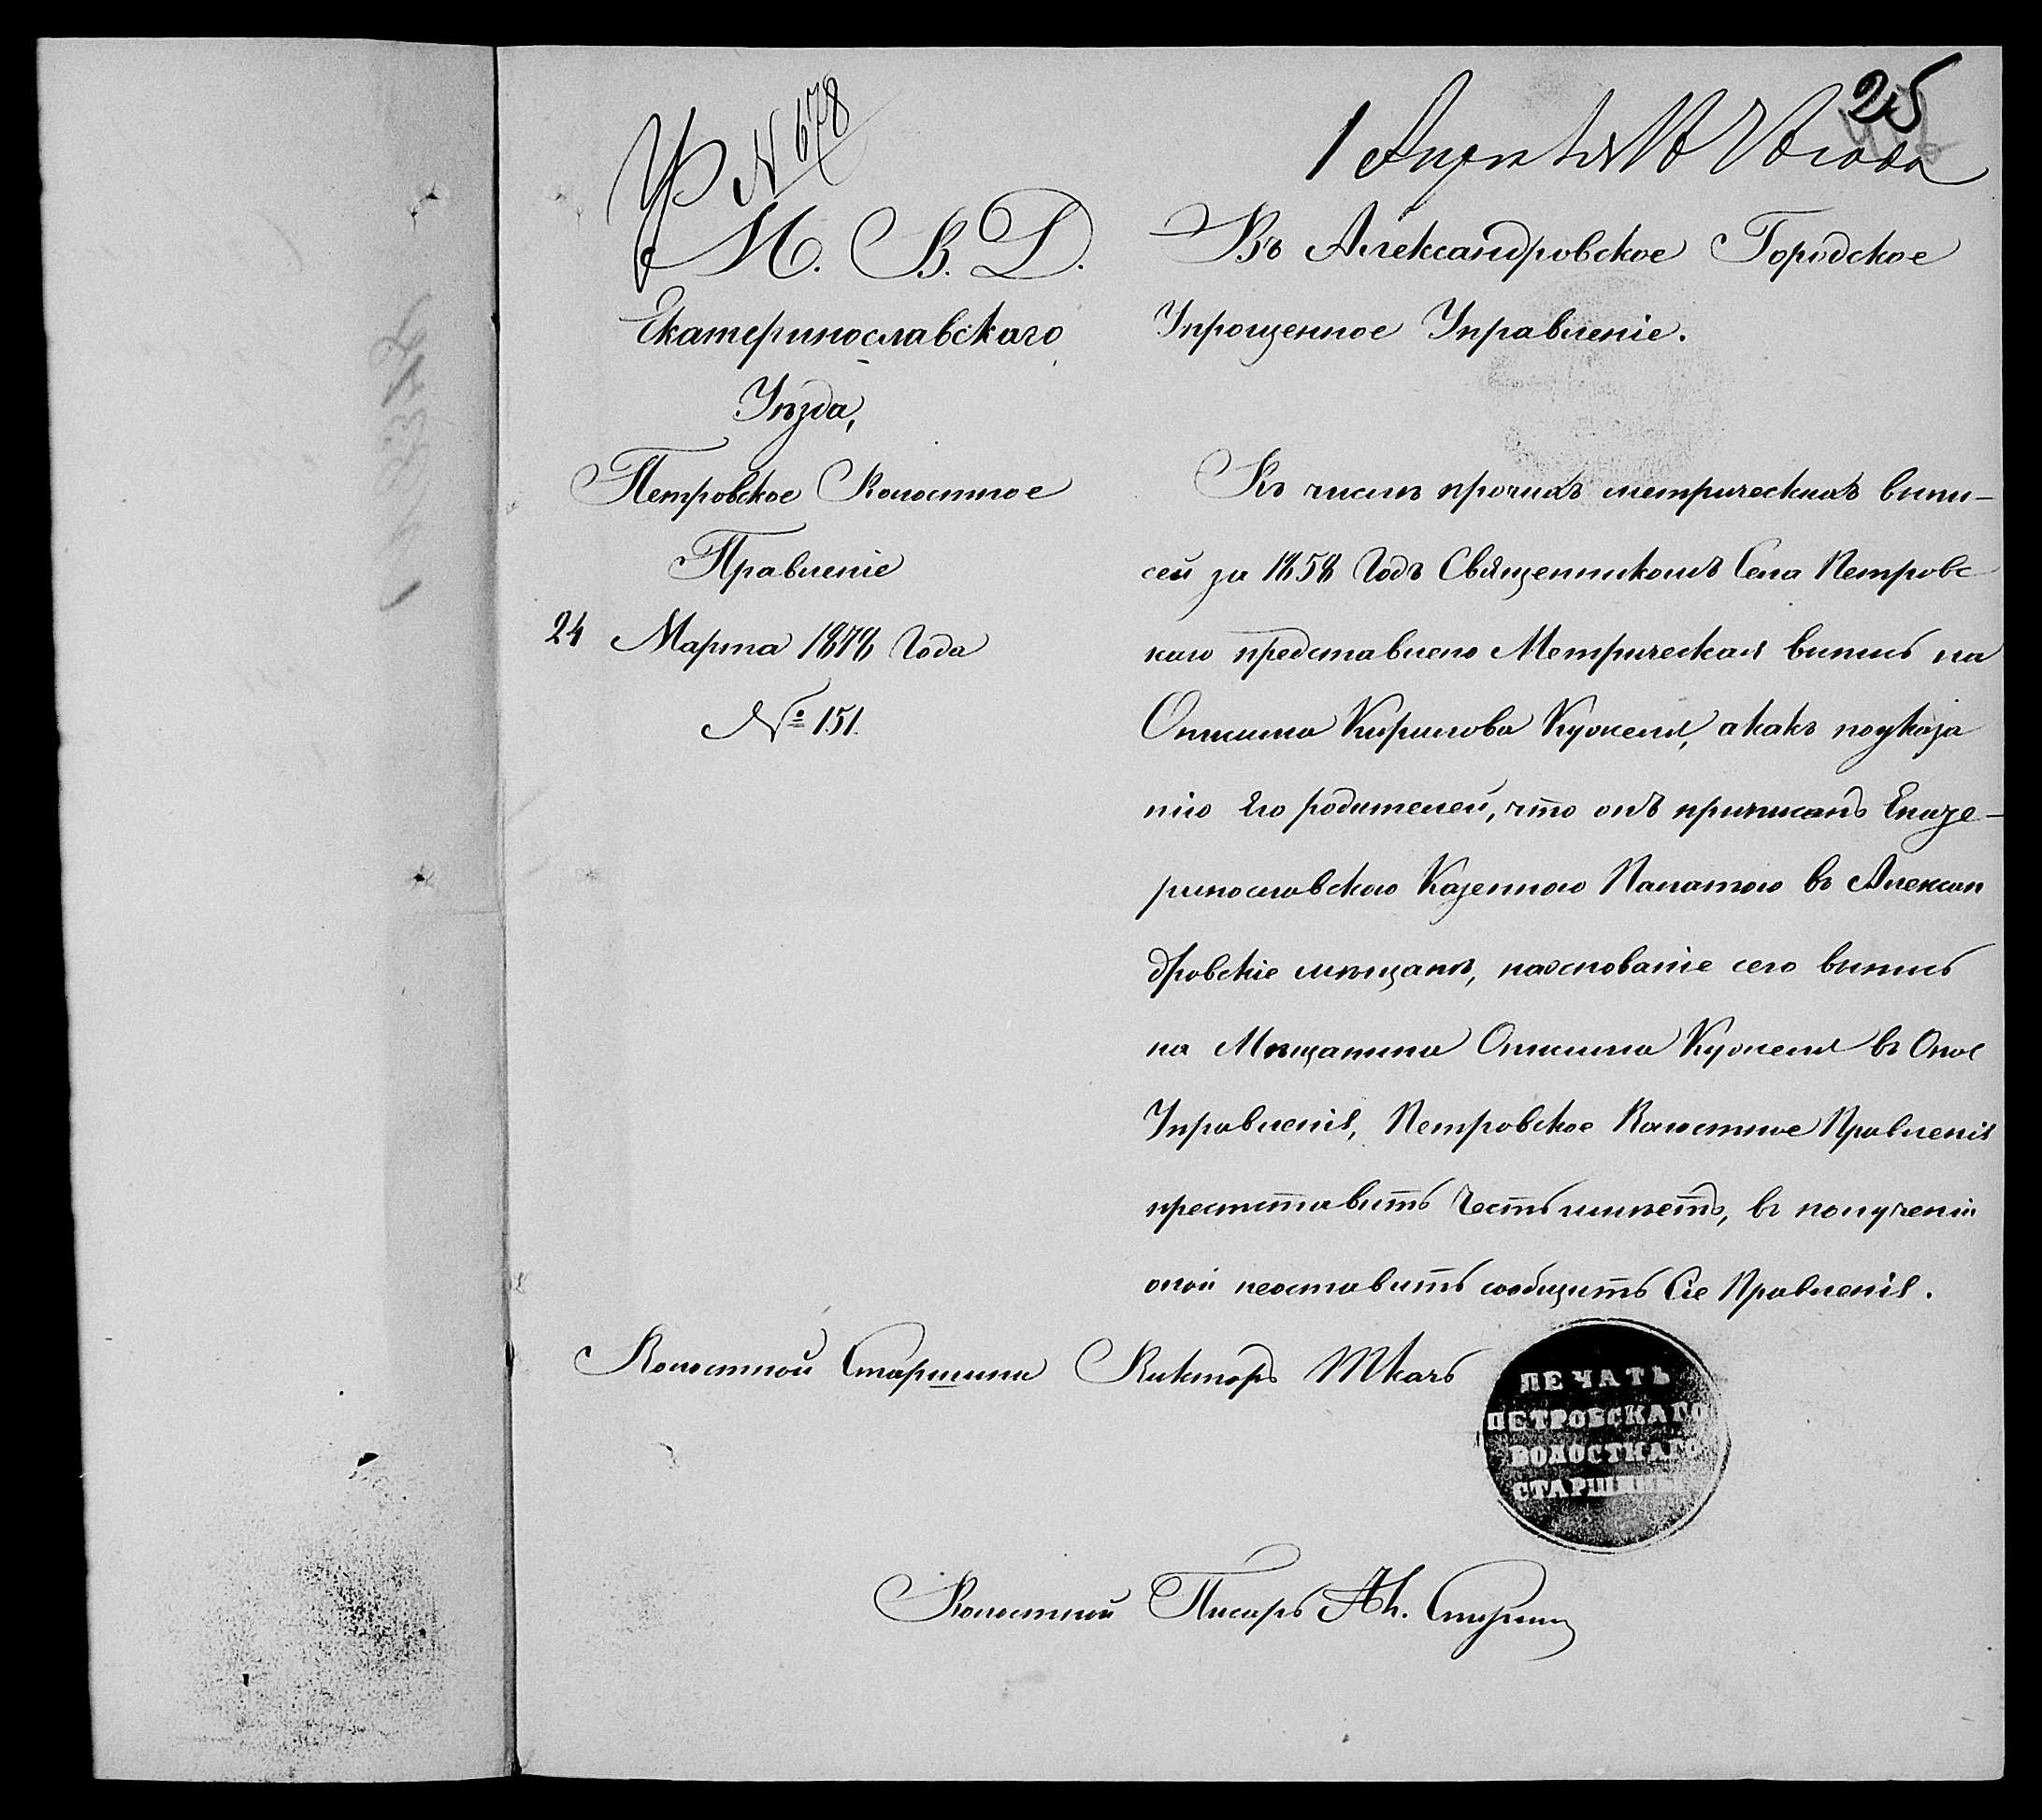 25
N 678
1 Апреля 1878 года
М. В. Д.
Екатеринославскаго
Уѣзда,
Петровское Волостное
Правленіе
24 Марта 1878 Года
№ 151.
Въ Александровское Городское
Упрощенное Управленіе.
Въ числѣ прочихъ метрическихъ выпи-
сей за 1858 Годъ Священникомъ Села Петровс
каго представлено Метрическая выпись на
Онисима Кирилова Кужеля, а какъ поуказа
нію Его родителей, что онъ приписанъ Екате-
ринославскою Казенною Палатою въ Алексан
дровскіе мѣщане, наоснованіе сего выпись
на Мѣщанина Онисима Кужеля въ Оное
Управленія, Петровское Волостное Правленія
преститавить Честь имѣетъ, въ полученіи
оной неоставить сообщить Сіе Правленія.
Волостной Старшина Викторъ Ткачь
ПЕЧАТЬ
ПЕТРОВСКАГО
ВОЛОСТНАГО
СТАРШИНЫ
Волостной Писарь